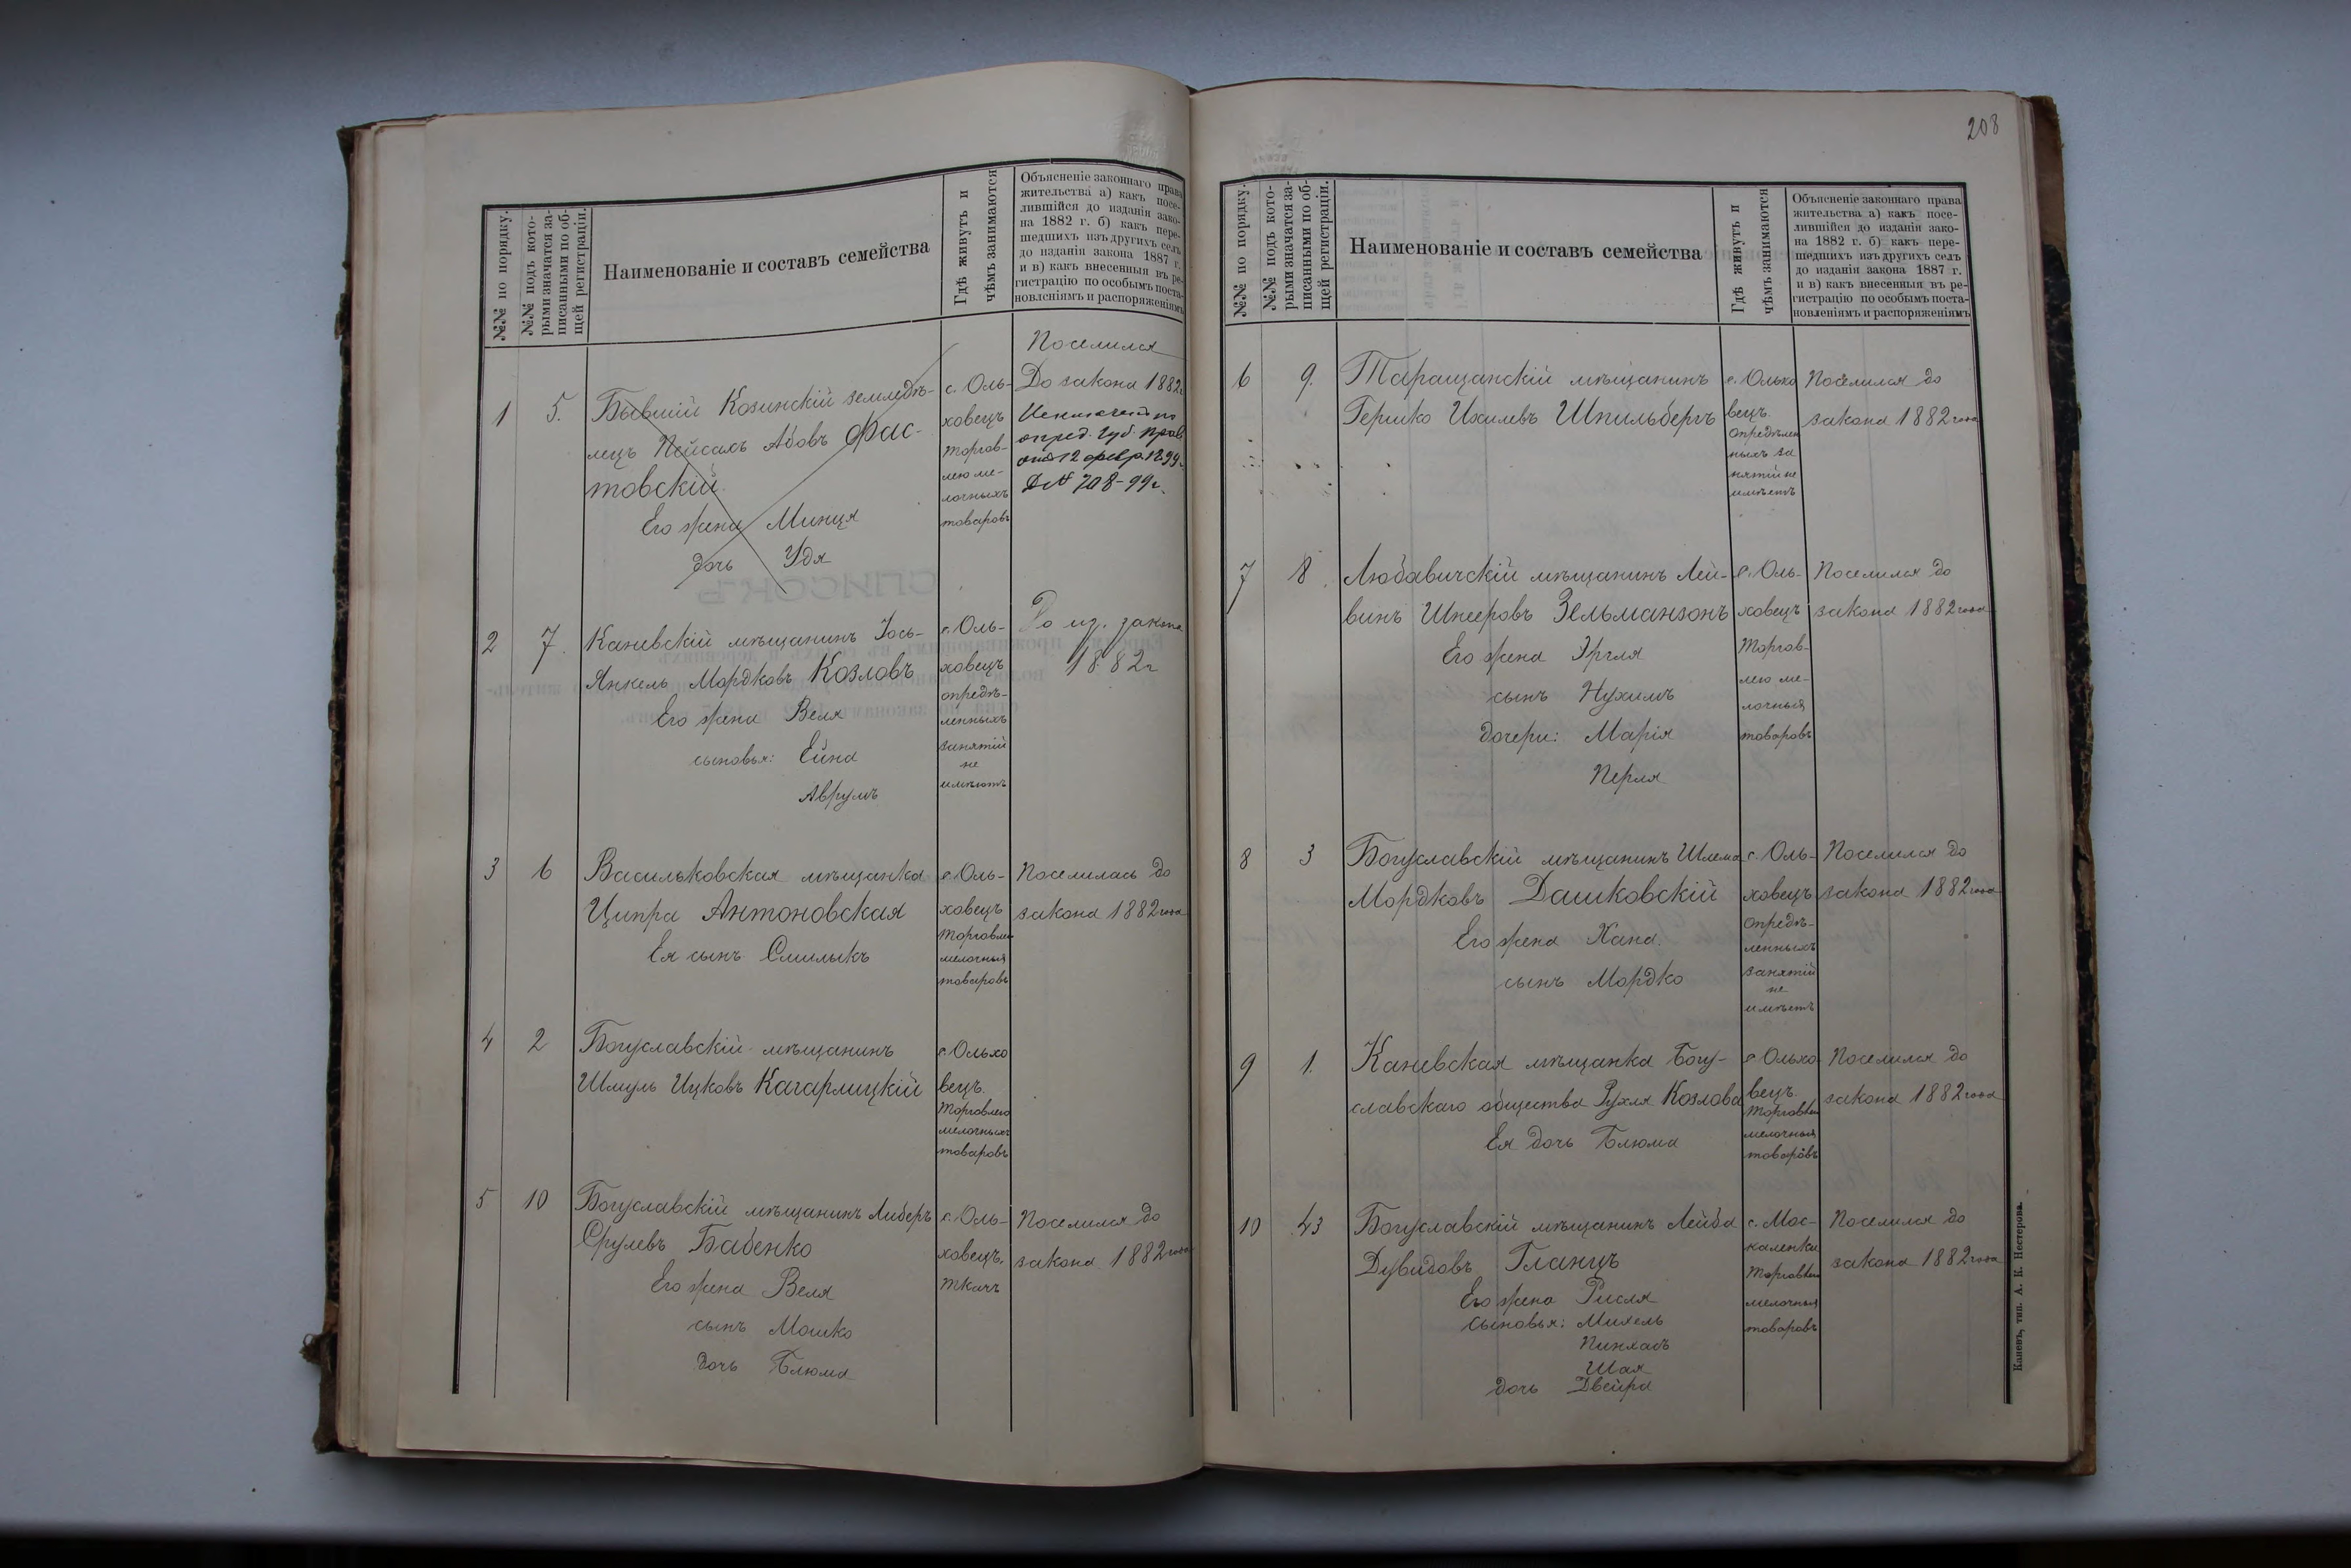 №№ по порядку.
№№ подъ кото-
рыми значатся за-
писанными по об-
щей регистраціи.
Наименованіе и составъ семейства
Гдѣ живутъ и
чѣмъ занимаются
Объясненіе законнаго права
жительства а) какъ посе-
лившійся до изданія зако-
на 1882 г. б) какъ пере-
шедшихъ изъ другихъ селъ
до изданія закона 1887 г.
и в) какъ внесенныя въ ре-
гистрацію по особымъ поста-
новленіямъ и распоряженіямъ
1
5.
Бывшій Козинскій земледѣ-
лецъ Пейсахъ Абовъ Фас-
товскій
Его жена Минця
дочь Удя
с. Оль-
ховецъ
торгов-
лею ме-
лочныхъ
товаровъ
Поселился
До закона 1882 г.
Исключенъ по
опред. Губ. Прав.
отъ 12 февр. 1899 г.
Д № 708-99 г.
2
7.
Каневскій мѣщанинъ Іось-
Янкель Мордковъ Козловъ
Его жена Веля
сыновья: Ейна
Аврумъ
с. Оль-
ховецъ
опредѣ-
ленныхъ
занятій
не
имѣютъ
До из. закона
1882 г
3
6
Васильковская мѣщанка
Ципра Антоновская
Ея сынъ Смилыкъ
с. Оль-
ховецъ
торговлею
мелочныхъ
товаровъ
Поселилась до
закона 1882 года
4
2
Богуславскій мѣщанинъ
Шмуль Ицковъ Кагарлицкій
с. Ольхо
вецъ.
торговлею
мелочныхъ
товаровъ
5
10
Богуславскій мѣщанинъ Либеръ
Срулевъ Бабенко
Его жена Веля
сынъ Мошко
дочь Блюма
с. Оль-
ховецъ.
ткачъ
Поселился до
закона 1882 года
208
№№ по порядку.
№№ подъ кото-
рыми значатся за-
писанными по об-
щей регистраціи.
Наименованіе и составъ семейства
Гдѣ живутъ и
чѣмъ занимаются
Объясненіе законнаго права
жительства а) какъ посе-
лившійся до изданія зако-
на 1882 г. б) какъ пере-
шедшихъ изъ другихъ селъ
до изданія закона 1887 г.
и в) какъ внесенныя въ ре-
гистрацію по особымъ поста-
новленіямъ и распоряженіямъ
6
9.
Таращанскій мѣщанинъ
Гершко Ихилевъ Шпильбергъ
с. Ольхо
вецъ.
опредѣлен
ныхъ за
нятій не
имѣетъ
Поселился до
закона 1882 года
7
8.
Любавичскій мѣщанинъ Лей-
винъ Шнееровъ Зельмансонъ
Его жена Эргля
сынъ Нухимъ
дочери: Марія
Перля
с. Оль-
ховецъ
торгов-
лею ме-
лочныхъ
товаровъ
Поселился до
закона 1882 года
8
3
Богуславскій мѣщанинъ Шлема
Мордковъ Дашковскій
Его жена Хана.
сынъ Мордко
с. Оль-
ховецъ
опредѣ-
ленныхъ
занятій
не
имѣетъ
Поселился до
закона 1882 года
9
1.
Каневская мѣщанка Богу-
славскаго общества Рухля Козлова
Ея дочь Блюма
с. Ольхо
вецъ.
торговлею
мелочныхъ
товаровъ
Поселился до
закона 1882 года
10
43
Богуславскій мѣщанинъ Лейба
Дувидовъ Гланцъ
Его жена Рисля
Сыновья: Михель
Пинхасъ
Шая
дочь Двейра
с. Мос-
каленки
торговлею
мелочныхъ
товаровъ
Поселился до
закона 1882 года
Каневъ, тип. А. К. Нестерова.